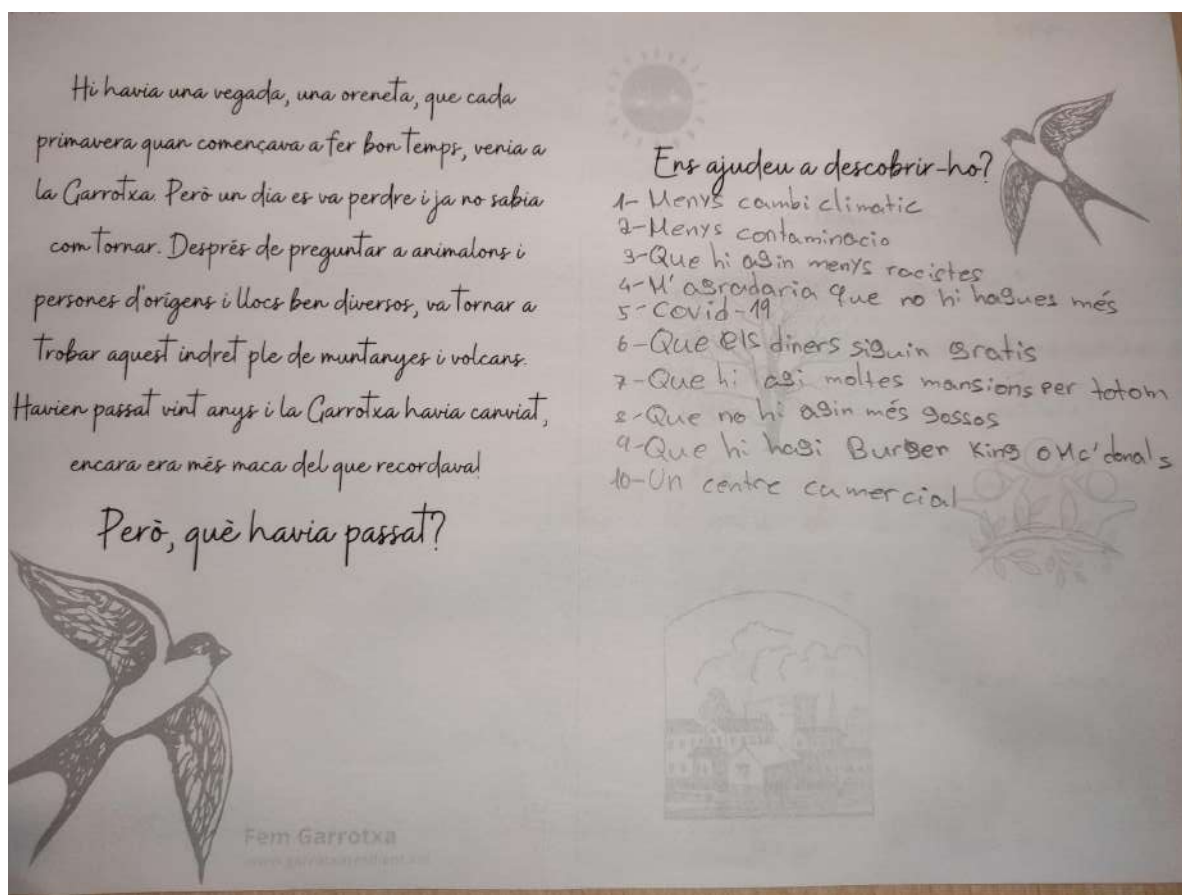 Hi havia una vegada, una oreneta, que cada
primavera quan començava a fer bon temps, venia a
la Garrotxa. Però un dia es va perdre i ja no sabia
com tornar. Després de preguntar a animalons i
persones d'orígens i llocs ben diversos, va tornar a
trobar aquest indret ple de muntanyes i volcans.
Havien passat vint anys i la Garrotxa havia canviat,
encara era més maca del que recordava!
Però, què havia passat?
Fem Garrotxa
Ens ajudeu a descobrir-ho?
1- Menys cambi climatic
2- Menys contaminacio
3- Que hi agin menys racistes
4- M'agradaria que no hi hagues més
5- Covid-19
6- Que els diners siguin gratis
7- Que hi agi moltes mansions per totom
8- Que no hi agin més gossos
9- Que hi hagi Burger King o Mc'donals
10- Un centre camercial